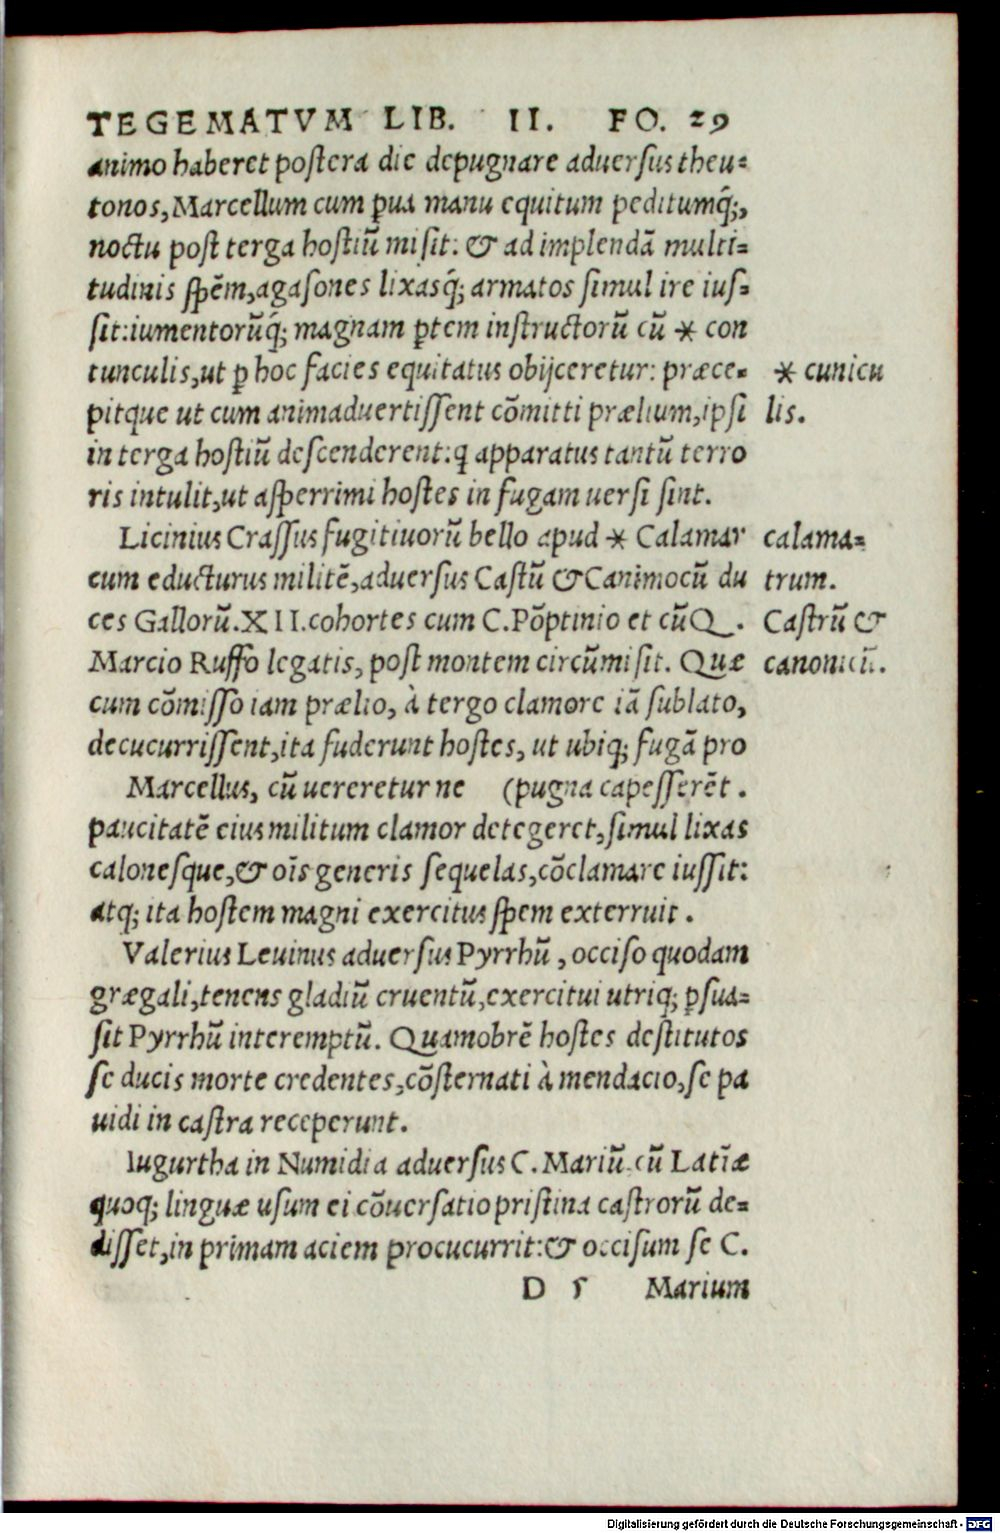 TEGEMATVM LIB. II. FO. 29
animo haberet postera die depugnare aduersus theu=
tonos, Marcellum cum ꝑua manu equitum peditumq́;,
noctu post terga hostiũ misit: & ad implendã multi=
tudinis spẽm, agasones lixasq́; armatos simul ire ius=
sit: iumentorũq́; magnam ꝑtem instructorũ cũ * con
tunculis, ut ꝑ hoc facies equitatus obijceretur: præce=
* cunicu
pitque ut cum animaduertissent cõmitti prælium, ipsi
lis.
in terga hostiũ descenderent: q apparatus tantũ terro
ris intulit, ut asperrimi hostes in fugam uersi sint.
Licinius Crassus fugitiuorũ bello apud * Calamar
calama=
cum educturus militẽ, aduersus Castũ & Canimocũ du
trum.
ces Gallorũ. XII. cohortes cum C. Põptinio et cũ Q.
Castrũ &
Marcio Ruffo legatis, post montem circũmisit. Quæ
canonicũ.
cum cõmisso iam prælio, à tergo clamore iã sublato,
decucurrissent, ita fuderunt hostes, ut ubiq; fugã pro
Marcellus, cũ uereretur ne (pugna capesserẽt.
paucitatẽ eius militum clamor detegeret, simul lixas
calonesque, & oĩs generis sequelas, cõclamare iussit:
atq; ita hostem magni exercitus spem exterruit.
Valerius Leuinus aduersus Pyrrhũ, occiso quodam
grægali, tenens gladiũ cruentũ, exercitui utriq; ꝑsua=
sit Pyrrhũ interemptũ. Quamobrẽ hostes destitutos
se ducis morte credentes, cõsternati à mendacio, se pa
uidi in castra receperunt.
Iugurtha in Numidia aduersus C. Mariũ, cũ Latĩæ
quoq; linguæ usum ei cõuersatio pristina castrorũ de=
disset, in primam aciem procucurrit: & occisum se C.
D 5 Marium
Digitalisierung gefördert durch die Deutsche Forschungsgemeinschaft - DFG